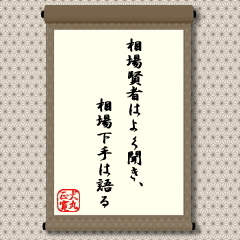 相場賢者はよく聞き、
相場下手は語る